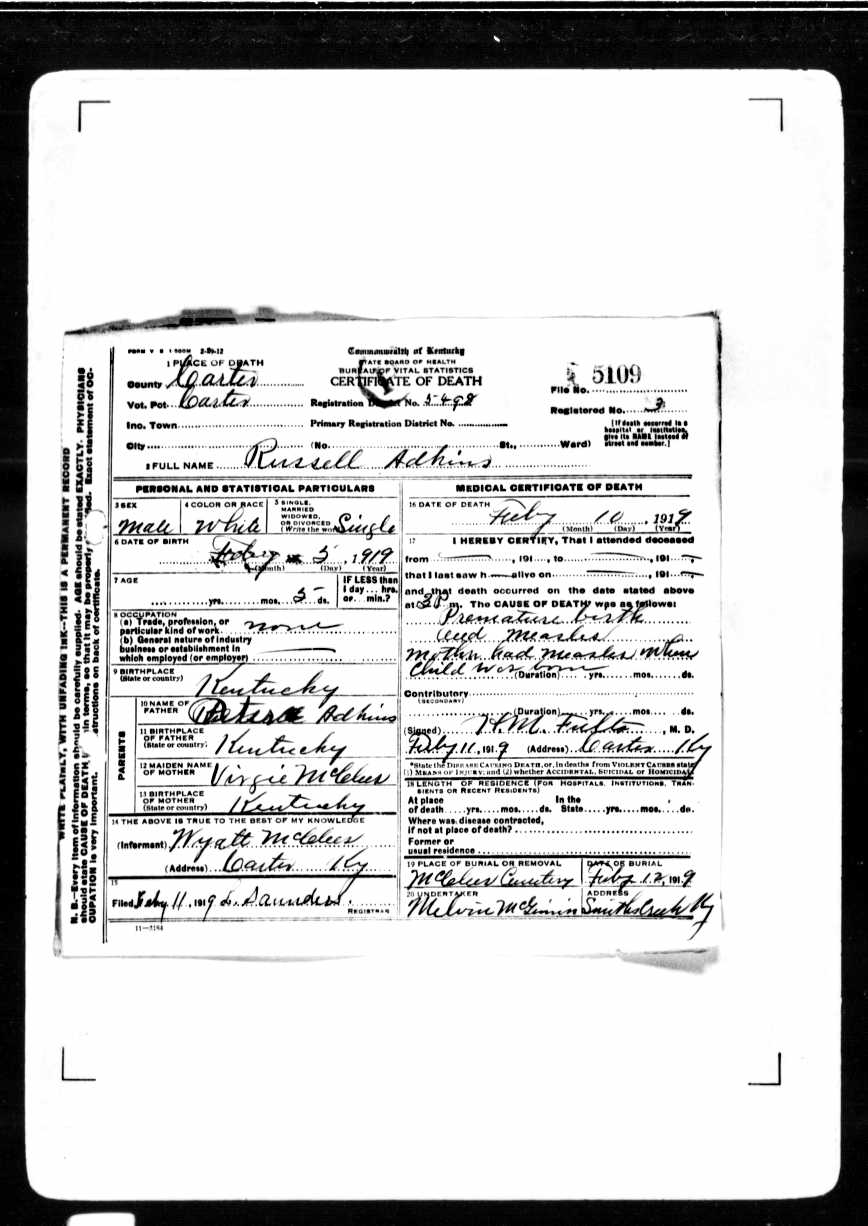 FORM V S 1 500M 2-29-12
Commonwealth of Kentucky
STATE BOARD OF HEALTH
BUREAU OF VITAL STATISTICS
CERTIFICATE OF DEATH
1 PLACE OF DEATH
County Carter
Vot. Pct. Carter
Inc. Town
City
Registration District No. 5498
Primary Registration District No.
(No. St., Ward)
File No. 5109
Registered No. 3
[If death occurred in a
hospital or institution,
give its NAME instead of
street and number.]
2 FULL NAME Russell Adkins
PERSONAL AND STATISTICAL PARTICULARS
3 SEX
Male
4 COLOR OR RACE
White
5 SINGLE,
MARRIED
WIDOWED,
OR DIVORCED
(Write the word) Single
6 DATE OF BIRTH
Feby 5, 1919
(Month) (Day) (Year)
7 AGE
yrs. mos. 5 ds.
IF LESS than
1 day... hrs.
or... min.?
8 OCCUPATION
(a) Trade, profession, or
particular kind of work none
(b) General nature of industry
business or establishment in
which employed (or employer)
9 BIRTHPLACE
(State or country)
Kentucky
PARENTS
10 NAME OF
FATHER Adkins
11 BIRTHPLACE
OF FATHER
(State or country) Kentucky
12 MAIDEN NAME
OF MOTHER Virgie
13 BIRTHPLACE
OF MOTHER
(State or country) Kentucky
14 THE ABOVE IS TRUE TO THE BEST OF MY KNOWLEDGE
(Informant) Wyatt
(Address) Carter Ky
15
Filed Feby 11, 1919 L. Saunders
REGISTRAR
11-3184
MEDICAL CERTIFICATE OF DEATH
16 DATE OF DEATH
Feby 10, 1919
(Month) (Day) (Year)
17 I HEREBY CERTIFY, That I attended deceased
from , 191 , to , 191
that I last saw h alive on , 191
and that death occurred on the date stated above
at 3P m. The CAUSE OF DEATH* was as follows:
Premature birth
and measles
Mother had measles when
child was born
(Duration) yrs. mos. ds.
Contributory
(SECONDARY)
(Duration) yrs. mos. ds.
(Signed) H.M. Fults, M. D.
Feby 11, 1919 (Address) Carter Ky
*State the DISEASE CAUSING DEATH, or, in deaths from VIOLENT CAUSES state
(1) MEANS OF INJURY; and (2) whether ACCIDENTAL, SUICIDAL or HOMICIDAL
18 LENGTH OF RESIDENCE (FOR HOSPITALS, INSTITUTIONS, TRAN-
SIENTS OR RECENT RESIDENTS)
At place
of death yrs. mos. ds.
In the
State yrs. mos. ds.
Where was disease contracted,
if not at place of death?
Former or
usual residence
19 PLACE OF BURIAL OR REMOVAL
Cemetery
DATE OF BURIAL
Feby 12, 1919
20 UNDERTAKER
Melvin
ADDRESS
Smiths Creek Ky
WRITE PLAINLY, WITH UNFADING INK--THIS IS A PERMANENT RECORD
N. B.--Every item of information should be carefully supplied. AGE should be stated EXACTLY. PHYSICIANS
should state CAUSE OF DEATH in terms, so that it may be properly Exact statement of OC-
CUPATION is very important. on back of certificate.